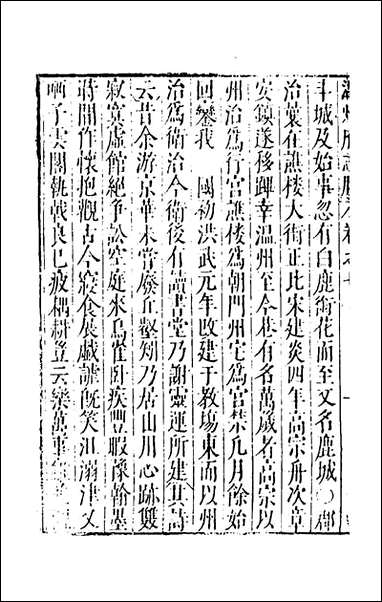 溫州府志
斗城及始事忽有白鹿銜花而至又名鹿城○郡
治橐在譙楼大街正北宋建炎四年高宗舟次章
安鎮遂移蹕幸温州至今巷有名萬歲者高宗以
州治爲行宫譙楼爲朝門州宅爲宫禁凡月餘始
回鑾我 國初洪武元年改建于教塲東而以州
治爲衛治今衛後有讀書堂乃謝靈運所建其詩
云昔余游京華未嘗廢丘壑矧乃居山川心跡雙
寂寞虛館絶爭訟空庭來鳥雀卧疾豐暇豫翰墨
時間作懷抱觀古今寢食展戯謔旣笑沮溺津又
哂子雲閣執戟良已疲耦耕登云樂萬事